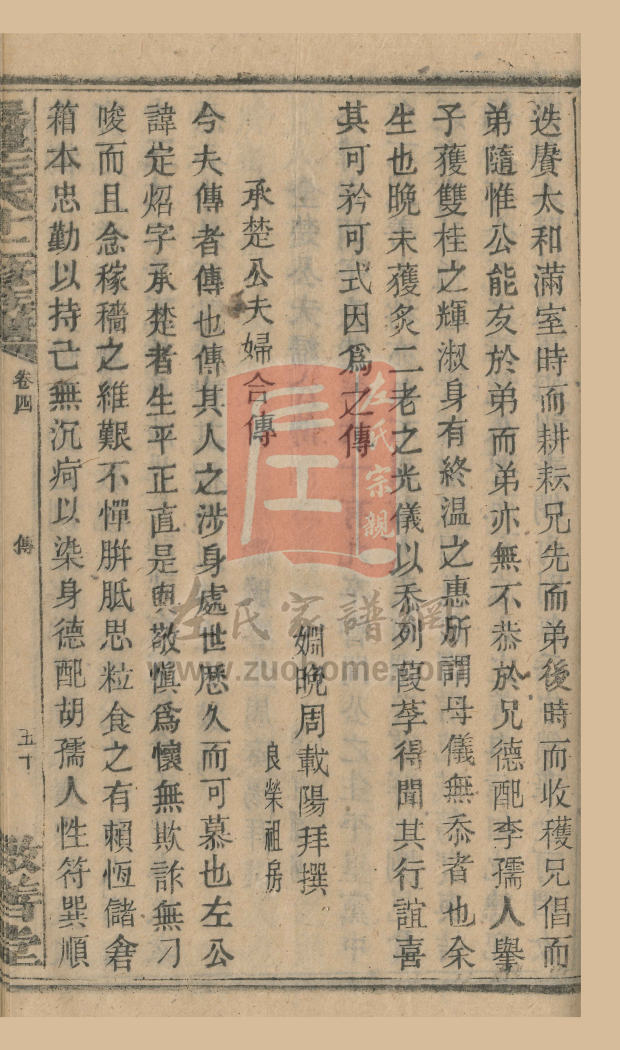 迭賡太和滿室時而耕耘兄先而弟後時而收穫兄倡而
弟隨惟公能友於弟而弟亦無不恭於兄德配李孺人舉
子獲雙桂之輝淑身有終温之惠所謂母儀無忝者也余
生也晚未獲炙二老之光儀以忝列葭莩得聞其行誼喜
其可矜可式因爲之傳
姻晚周載陽拜撰
承楚公夫婦合傳
良榮祖房
今夫傳者傳也傳其人之涉身處世歷久而可慕也左公
諱定炤字承楚者生平正直是與敬慎爲懷無欺詐無刁
唆而且念稼穡之維艱不憚胼胝思粒食之有賴恆儲倉
箱本忠勤以持己無沉疴以染身德配胡孺人性符巽順
卷四
傳
五十
敬善堂
左氏宗親
左氏家譜網
www.zuojiapu.com